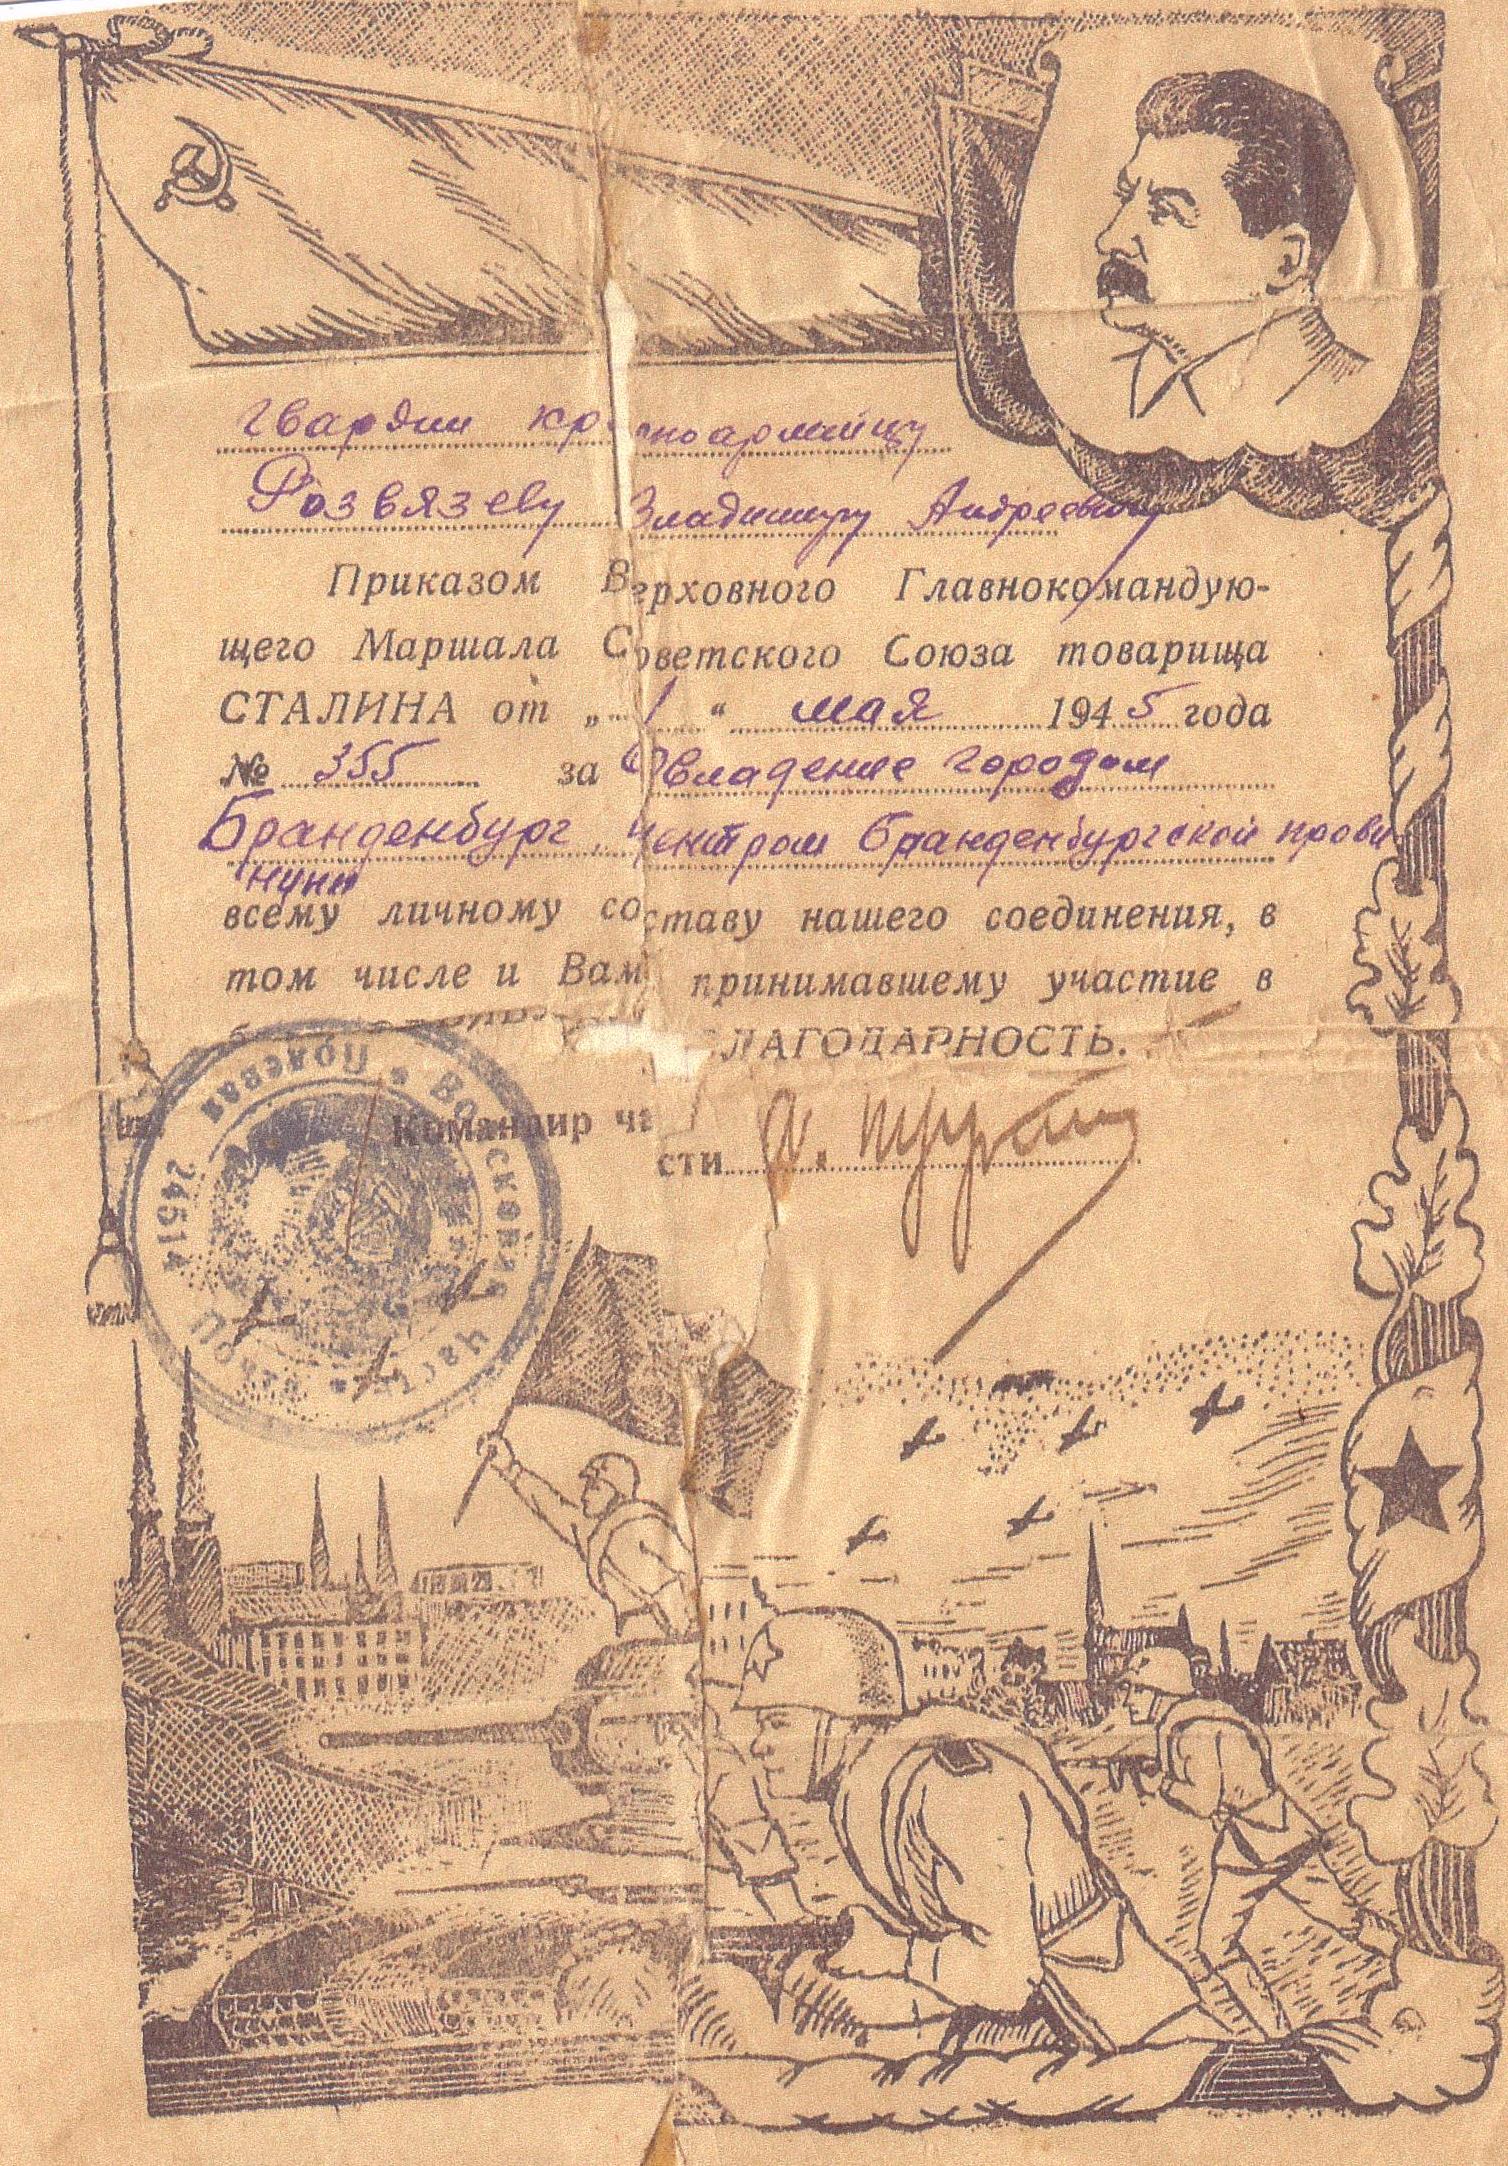 гвардии красноармейцу
Розвязеву Владимиру Андреевичу
Приказом Верховного Главнокомандую-
щего Маршала Советского Союза товарища
СТАЛИНА от „ 1 “ мая 1945 года
№ 355 за Овладение городом
Бранденбург, центром Бранденбургской прови
нции
всему личному составу нашего соединения, в
том числе и Вам принимавшему участие в
ЛАГОДАРНОСТЬ.
Командир части
Войсковая Часть
Полевая Почта
24514